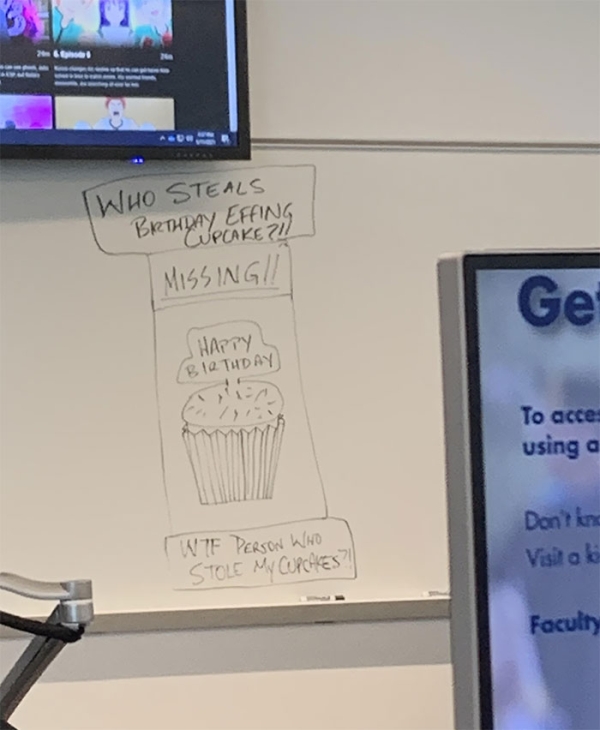 26m 6. Episode 6 26m
WHO STEALS
BIRTHDAY EFFING
CUPCAKE?!!
MISSING!!
HAPPY
BIRTHDAY
WTF PERSON WHO
STOLE MY CUPCAKES?!
Get
To acces
using a
Don't kno
Visit a ki
Faculty